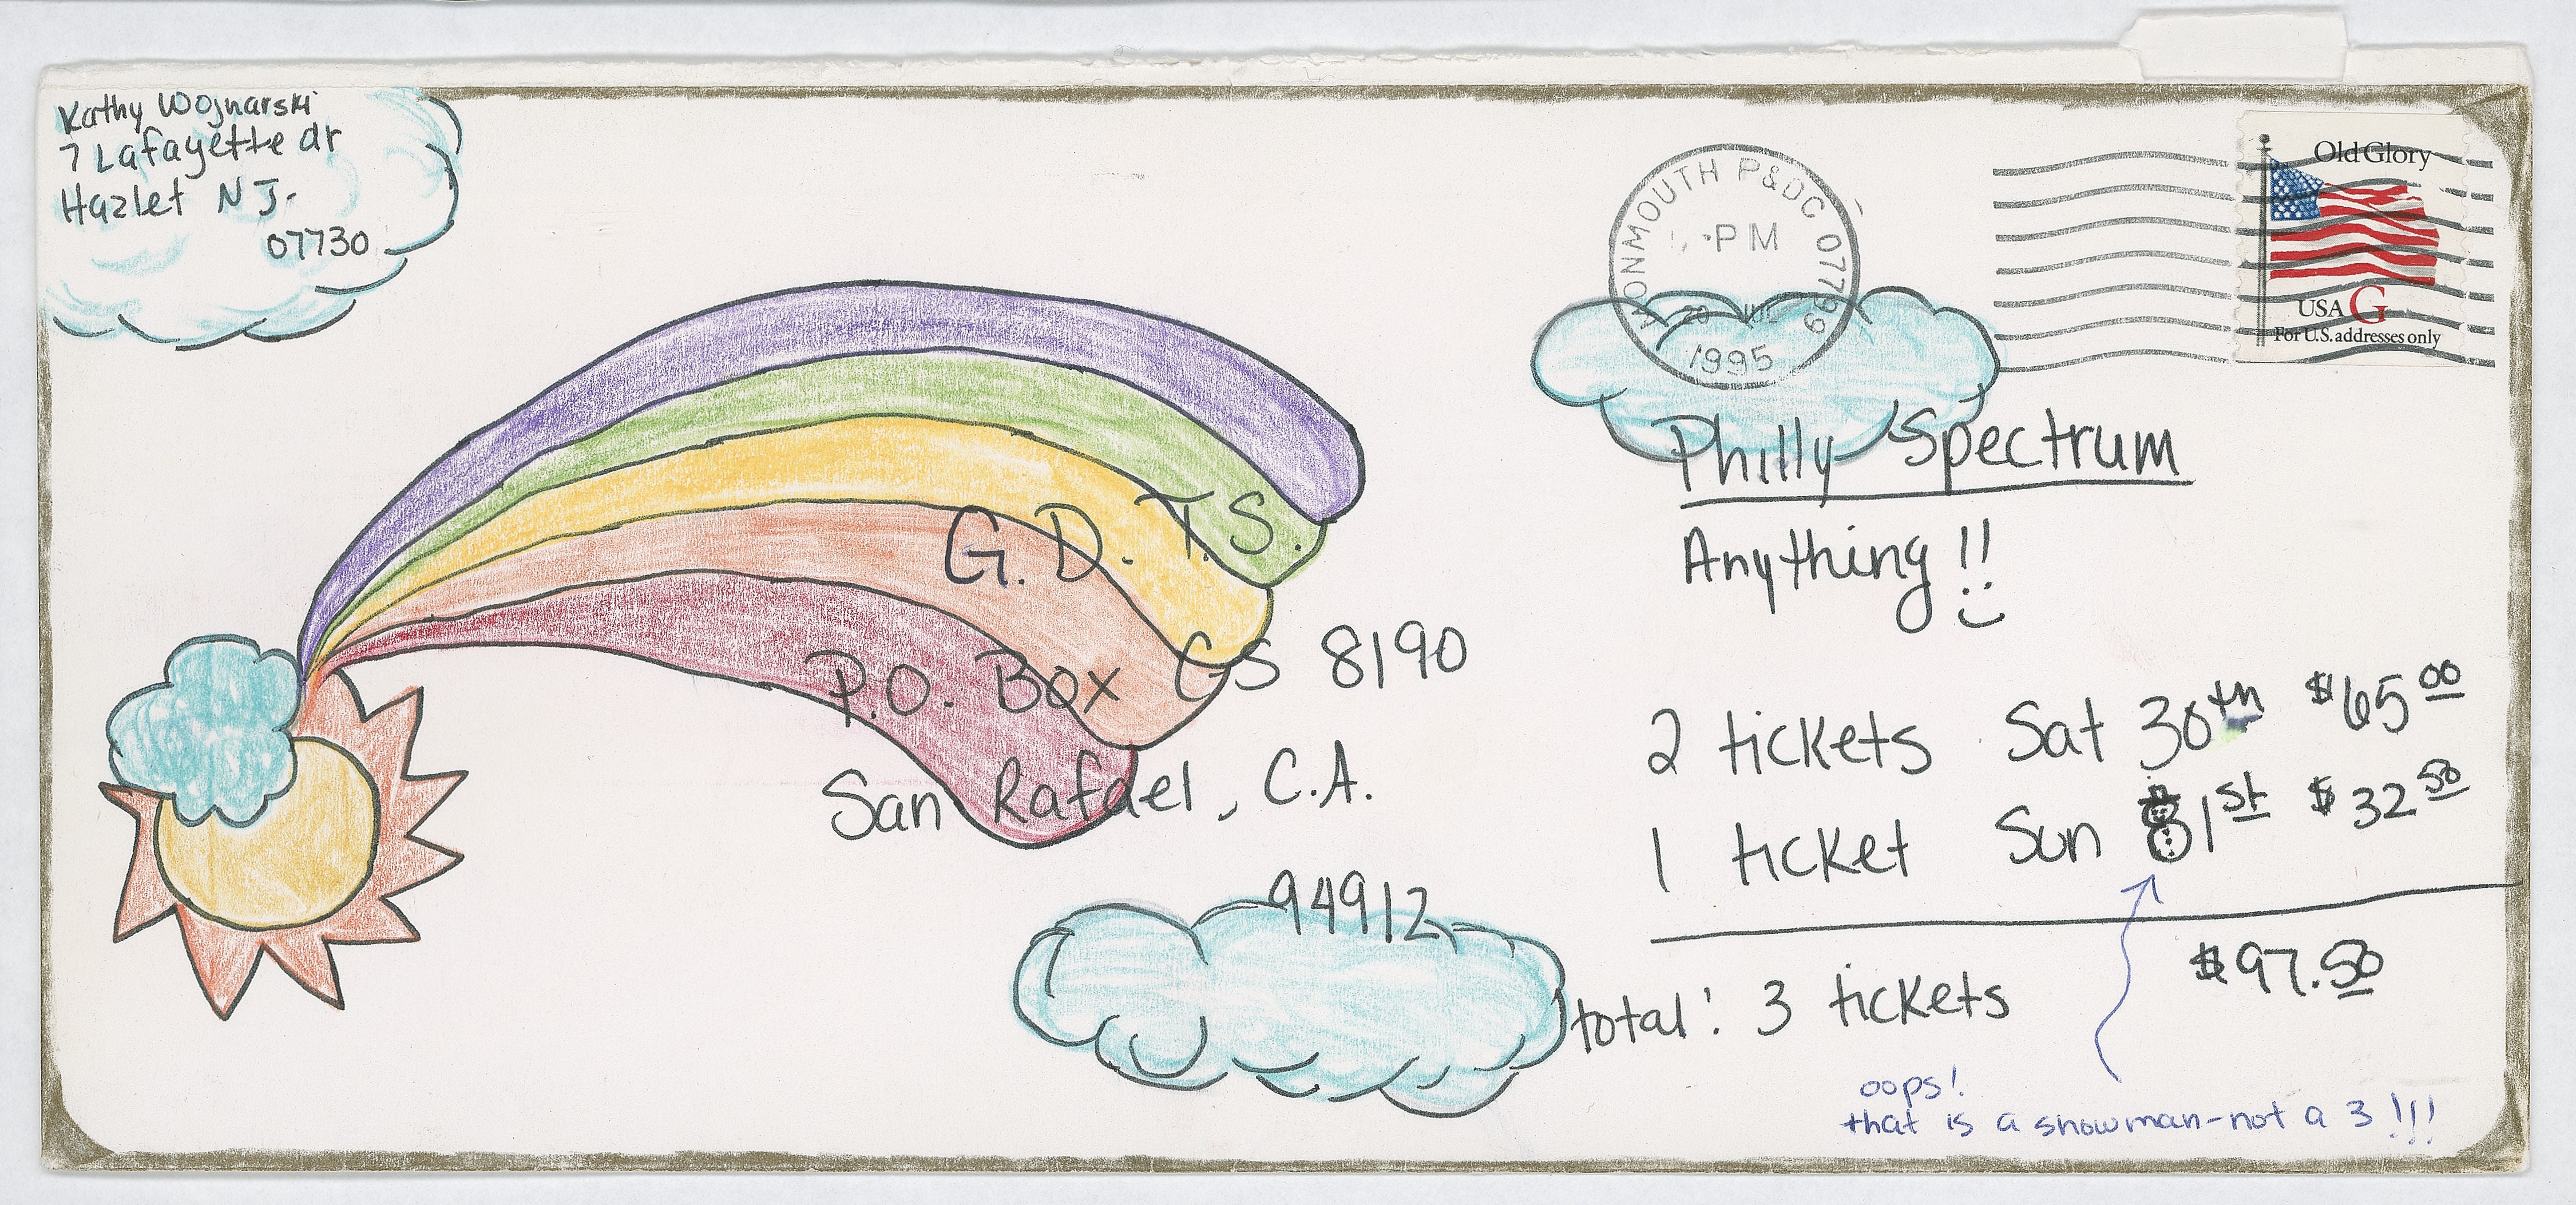 Kathy Wojnarski
7 Lafayette dr
Hazlet NJ.
07730
MONMOUTH P&DC 07799
PM
20 JUL
1995
Old Glory
USA G
For U.S. addresses only
G.D.T.S.
P.O. Box CS 8190
San Rafael, C.A.
94912
Philly Spectrum
Anything!!
2 tickets Sat 30th $65 00
1 ticket Sun 31st $32 50
total: 3 tickets $97.50
oops!
that is a snowman-not a 3!!!